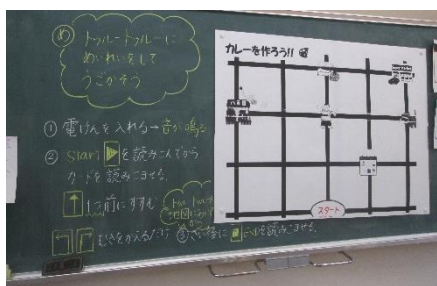 め
トゥルートゥルーに
めいれいをして
うごかそう
① 電げんを入れる→音が鳴る
② Startを読みこんでから
カードを読みこませる。
1つ前にすすむ
むきをかえるだけ
③さい後に Endを読みこませる。
カレーを作ろう!!
スタート